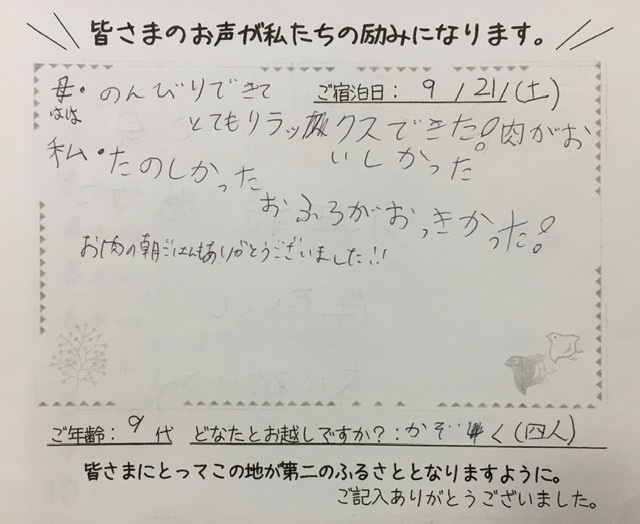 皆さまのお声が私たちの励みになります。
ご宿泊日: 9 / 21/(土)
母・のんびりできて
はは
とてもリラックスできた!肉がお
いしかった
私・たのしかった
おふろがおっきかった!
お肉の朝ごはんもありがとうございました!!
ご年齢: 9 代 どなたとお越しですか?: かぞく(四人)
皆さまにとってこの地が第二のふるさととなりますように。
ご記入ありがとうございました。